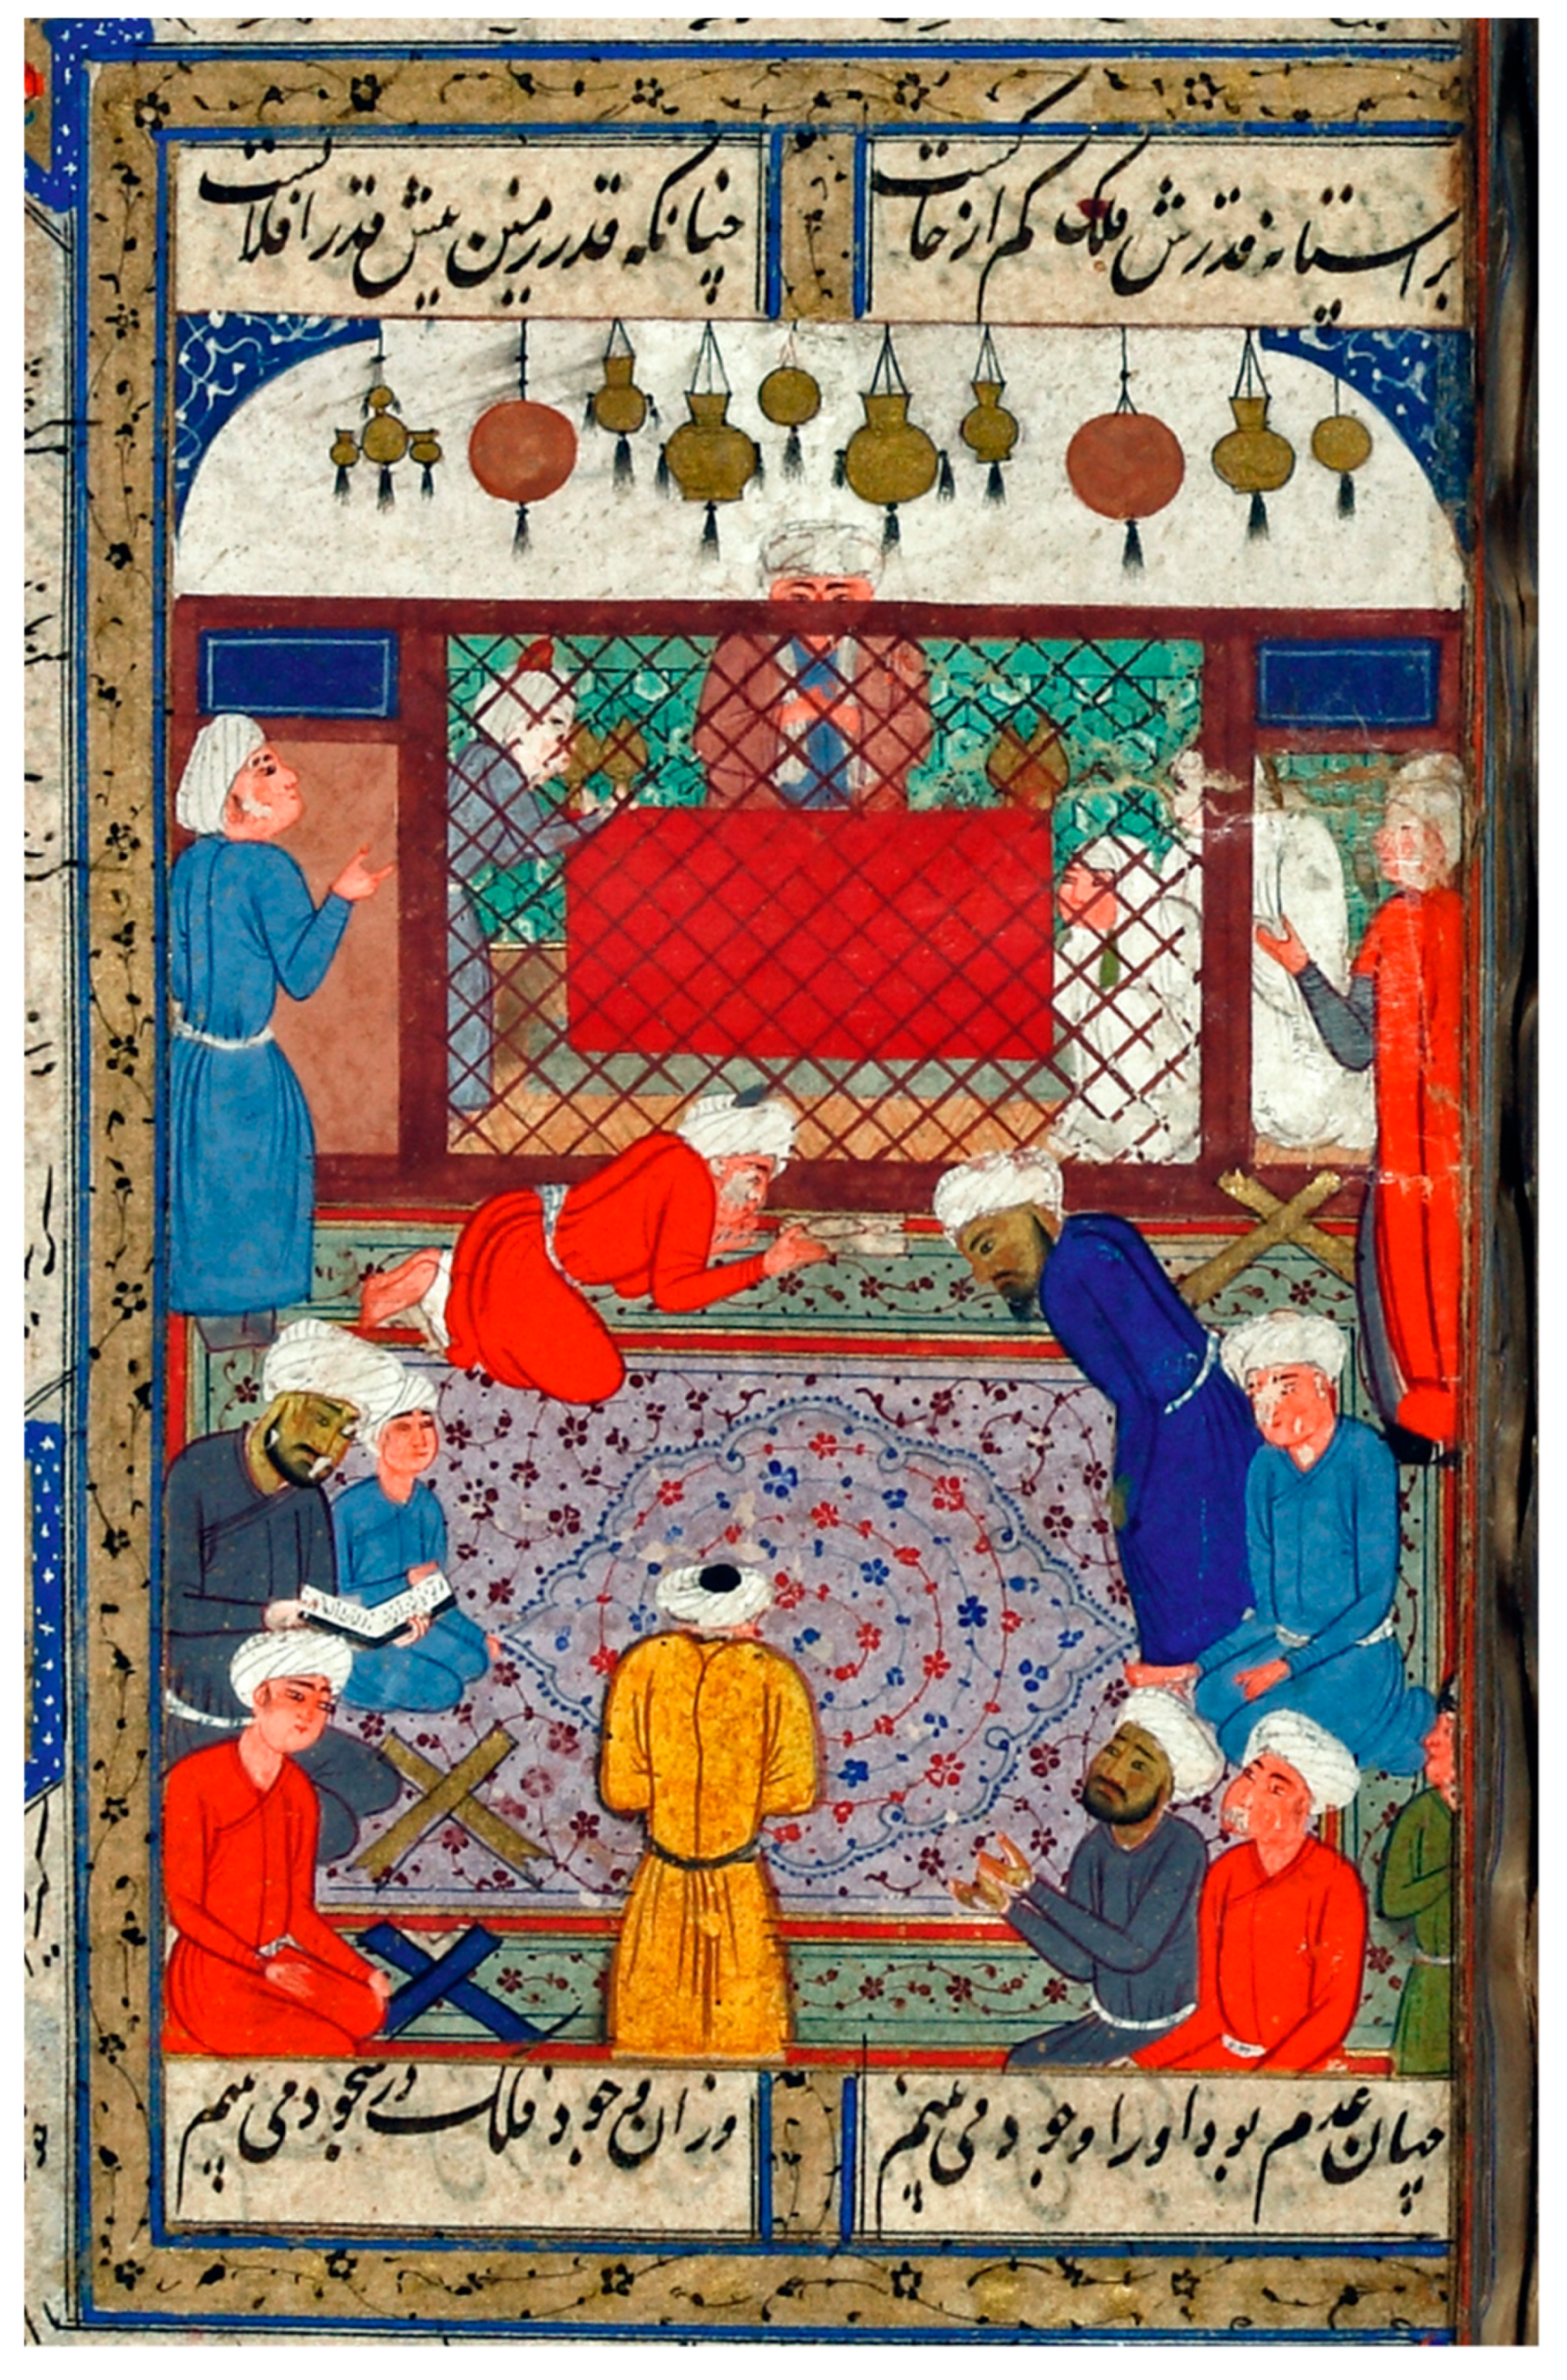 بر استانه قدرش فلک کم از خاکست
چنانکه قدر زمین پیش قدر افلاکست
چنان عدم بود اورا وجود می بینم
وزان وجود فلک در سجود می بینم